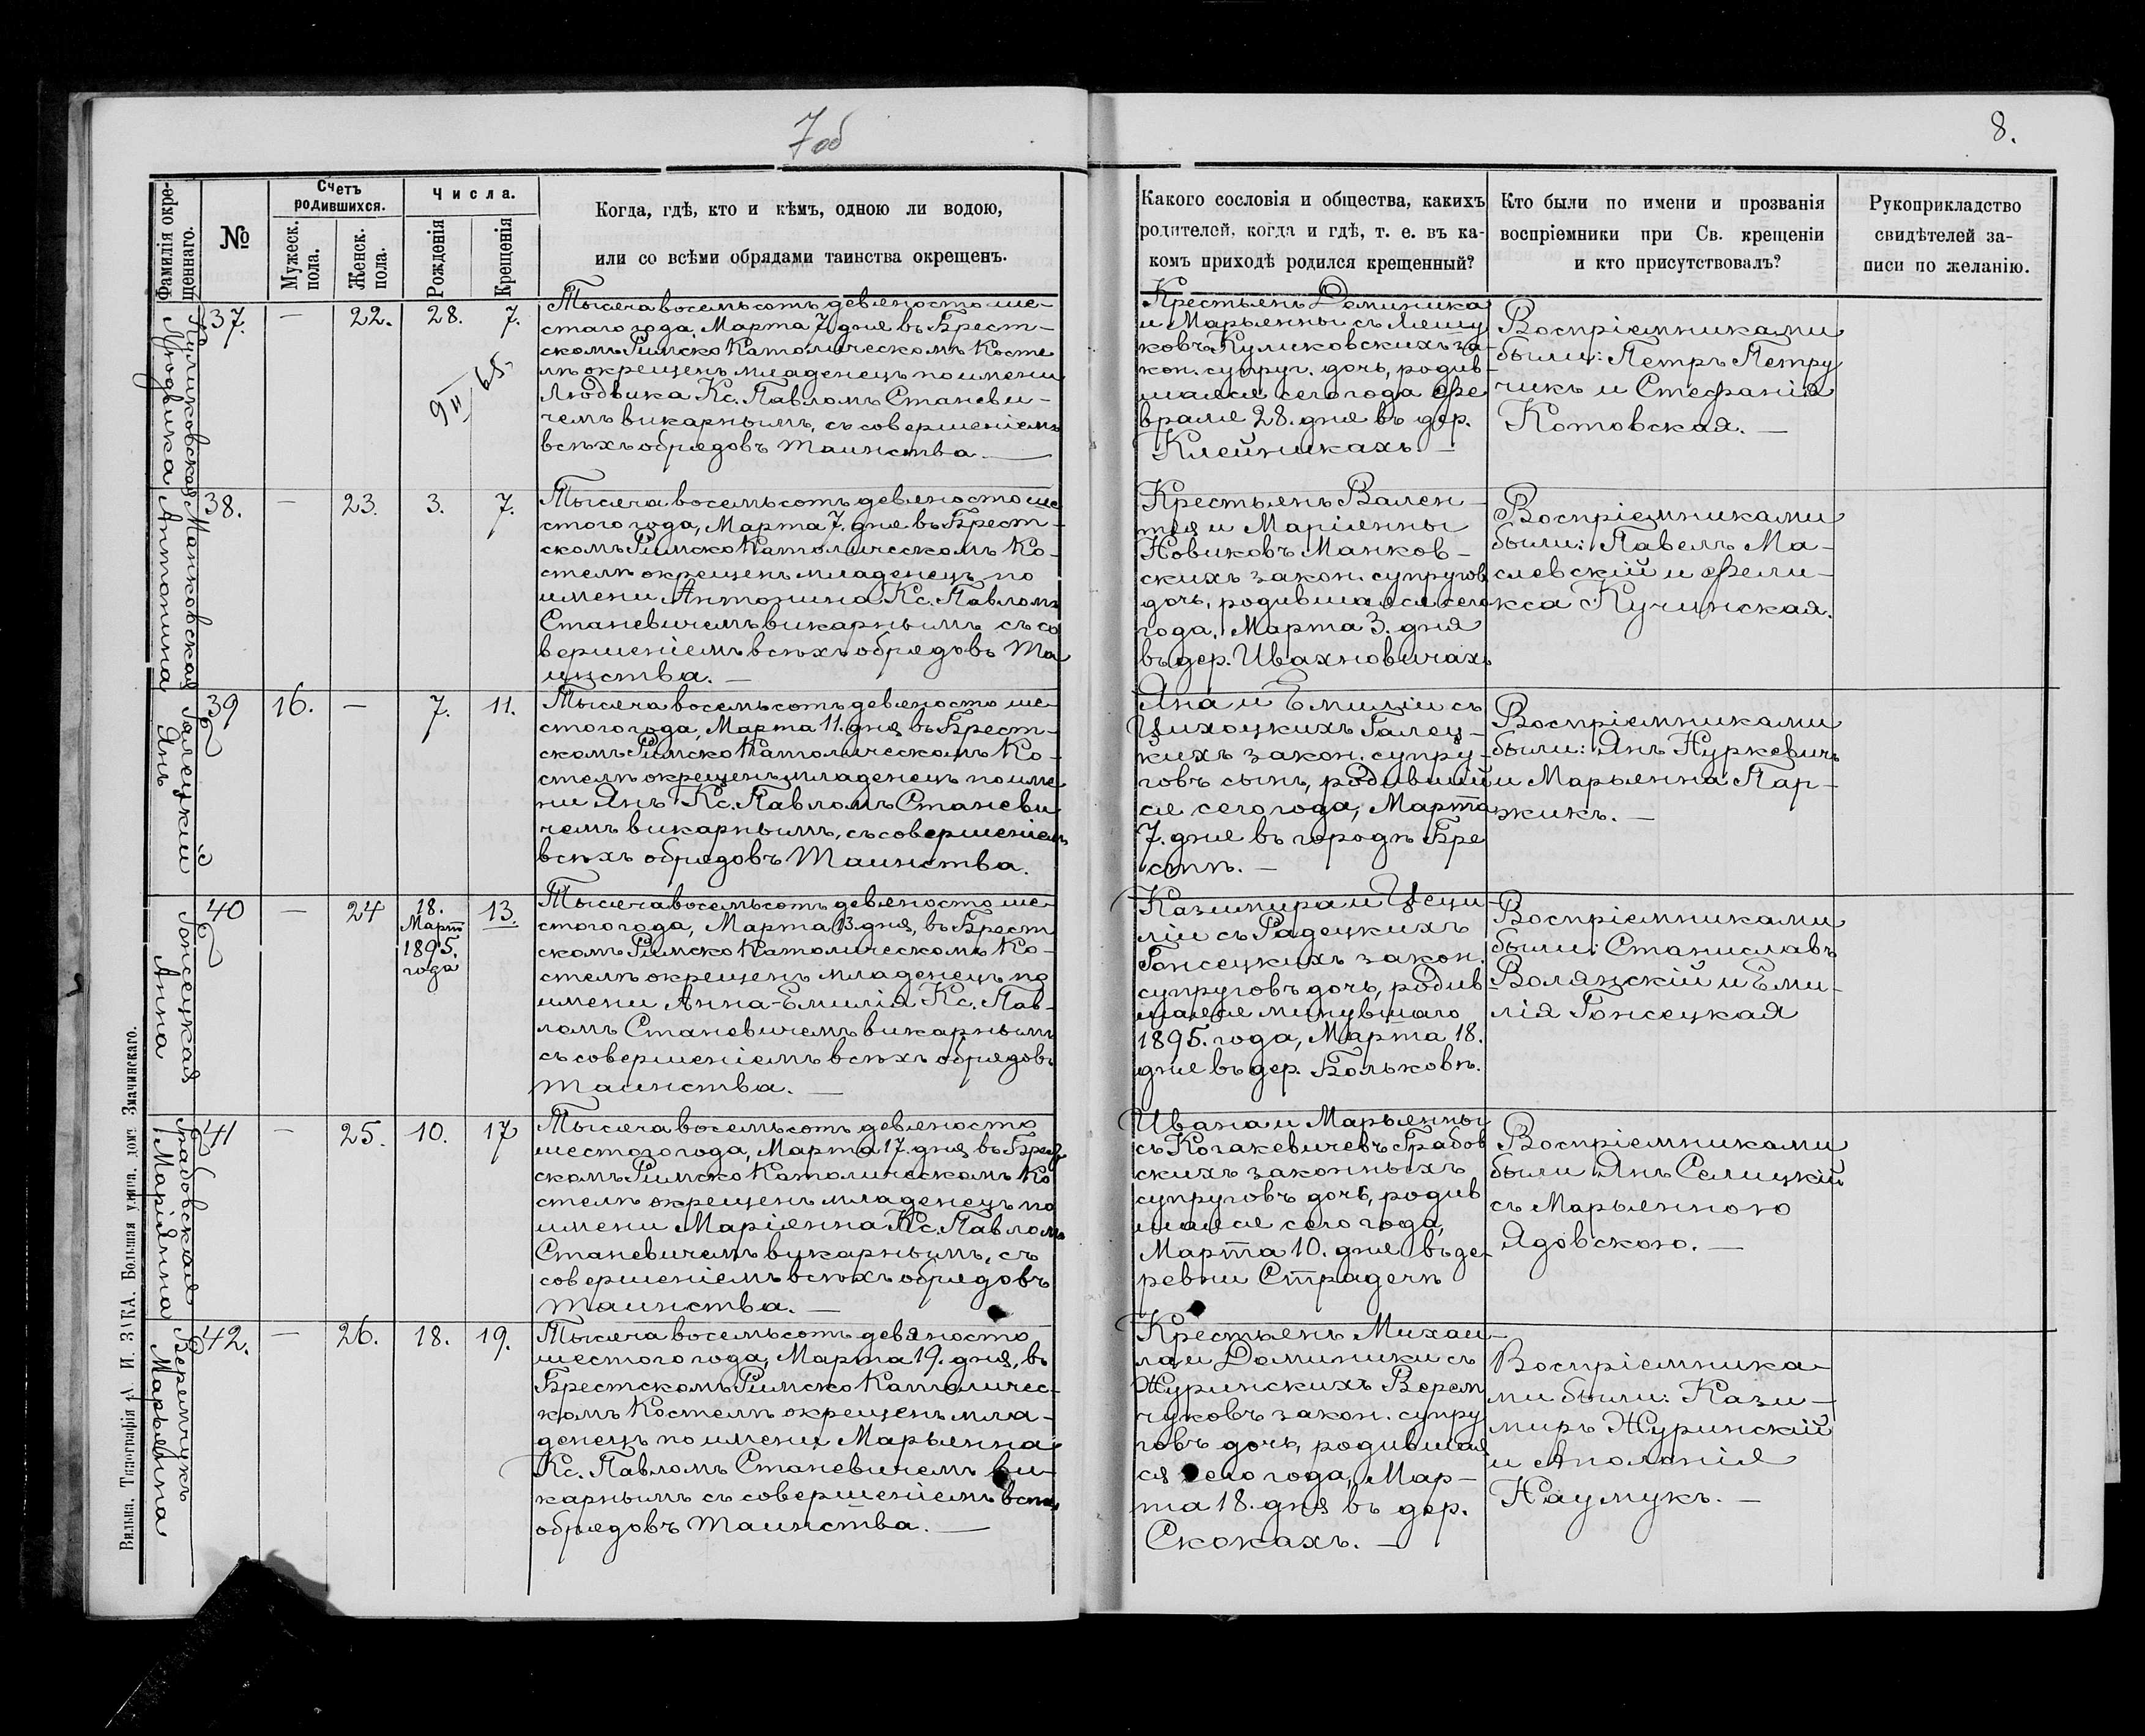 7 об
8.
Фамилія окре-
щеннаго.
№
Счетъ
родившихся.
Мужеск.
пола.
Женск.
пола.
Числа.
Рожденія
Крещенія
Когда, гдѣ, кто и кѣмъ, одною ли водою,
или со всѣми обрядами таинства окрещенъ.
Какого сословія и общества, какихъ
родителей, когда и гдѣ, т. е. въ ка-
комъ приходѣ родился крещенный?
Кто были по имени и прозванія
воспріемники при Св. крещеніи
и кто присутствовалъ?
Рукоприкладство
свидѣтелей за-
писи по желанію.
Куликовская
Людвика
37.
—
22.
28.
7.
9/II 65.
Тысяча восемьсотъ девяносто ше-
стаго года, Марта 7. дня въ Брест-
скомъ Римско Католическомъ Косте
лѣ окрещенъ младенецъ по имени
Людвика Кс. Павломъ Станеви-
чемъ викарнымъ, съ совершеніемъ
всѣхъ обрядовъ Таинства. —
Крестьянъ Доминика
и Марьянны съ Лешу
ковъ Куликовскихъ за-
кон. супруг. дочь, родив-
шаяся сего года Фе
враля 28. дня въ дер.
Клейникахъ. —
Воспріемниками
были: Петръ Петру
чикъ и Стефанія
Котовская. —
Манковская
Антонина
38.
—
23.
3.
7.
Тысяча восемьсотъ девяносто ше
стого года, Марта 7. дня въ Брест-
скомъ Римско Католическомъ Ко-
стелѣ окрещенъ младенецъ по
имени Антонина Кс. Павломъ
Станевичемъ викарнымъ съ со
вершеніемъ всѣхъ обрядовъ Та
инства. —
Крестьянъ Вален-
тія и Маріянны
Новиковъ Манков-
скихъ закон. супругов
дочь, родившаяся сего
года, Марта 3. дня
въ дер. Ивахновичахъ
Воспріемниками
были: Павелъ Ма-
слевскій и Фели-
кса Кучинская.
Галецкій
Янъ
39
16.
—
7.
11.
Тысяча восемьсотъ девяносто ше-
стого года, Марта 11. дня въ Брест-
скомъ Римско Католическомъ Ко-
стелѣ окрещенъ младенецъ по име-
ни Янъ Кс. Павломъ Станеви
чемъ викарнымъ, съ совершеніемъ
всѣхъ обрядовъ Таинства.
Яна и Емиліи съ
Цихоцкихъ Галец-
кихъ закон. супру-
говъ сынъ, родивший
ся сего года, Марта
7. дня въ городѣ Бре
стѣ. —
Воспріемниками
были: Янъ Нуркевичъ
и Марьянна Пар-
жикъ. —
Гонсецкая
Анна
40
—
24
18.
Март
1895.
года
13.
Тысяча восемьсотъ девяносто ше-
стого года, Марта 13. дня, въ Брест
скомъ Римско Католическомъ Ко-
стелѣ окрещенъ младенецъ по
имени Анна-Емилія Кс. Пав-
ломъ Станевичемъ викарнымъ
съ совершеніемъ всѣхъ обрядовъ
таинства. —
Казимира и Цеци-
ліи съ Радецкихъ
Гонсецкихъ закон.
супруговъ дочь, родив-
шаяся минувшаго
1895. года, Марта 18.
дня въ дер. Вольковѣ.
Воспріемниками
были: Станиславъ
Волянскій и Еми-
лія Гонсецкая
Грабовская
Маріянна
41
—
25.
10.
17
Тысяча восемьсотъ девяносто
шестого года, Марта 17. дня въ Брест
скомъ Римско Католическомъ Ко
стелѣ окрещенъ младенецъ по
имени Маріянна Кс. Павломъ
Станевичемъ викарнымъ, съ
совершеніемъ всѣхъ обрядовъ
таинства. —
Ивана и Марьянны
съ Когакевичевъ Грабов
скихъ законныхъ
супруговъ дочь, родив
шаяся сего года,
Марта 10. дня въ де-
ревни Страдечѣ
Воспріемниками
были Янъ Селицкій
съ Марьянною
Ядовскою. —
Веремчукъ
Марьянна
42.
—
26.
18.
19.
Тысяча восемьсотъ девяносто
шестого года, Марта 19. дня, въ
Брестскомъ Римско Католичес-
комъ Костелѣ окрещенъ мла-
денецъ по имени Марьянна
Кс. Павломъ Станевичемъ ви-
карнымъ съ совершеніемъ всѣхъ
обрядовъ таинства. —
Крестьянъ Михаи-
ла и Доминики съ
Журинскихъ Верем
чуковъ закон. супру
говъ дочь, родившая
ся сего года, Мар-
та 18. дня въ дер.
Скокахъ. —
Воспріемника-
ми были: Кази-
миръ Журинскій
и Аполонія
Наумукъ. —
Вильна. Типографія А. И. ЗАКА. Большая улица. домъ Значинскаго.